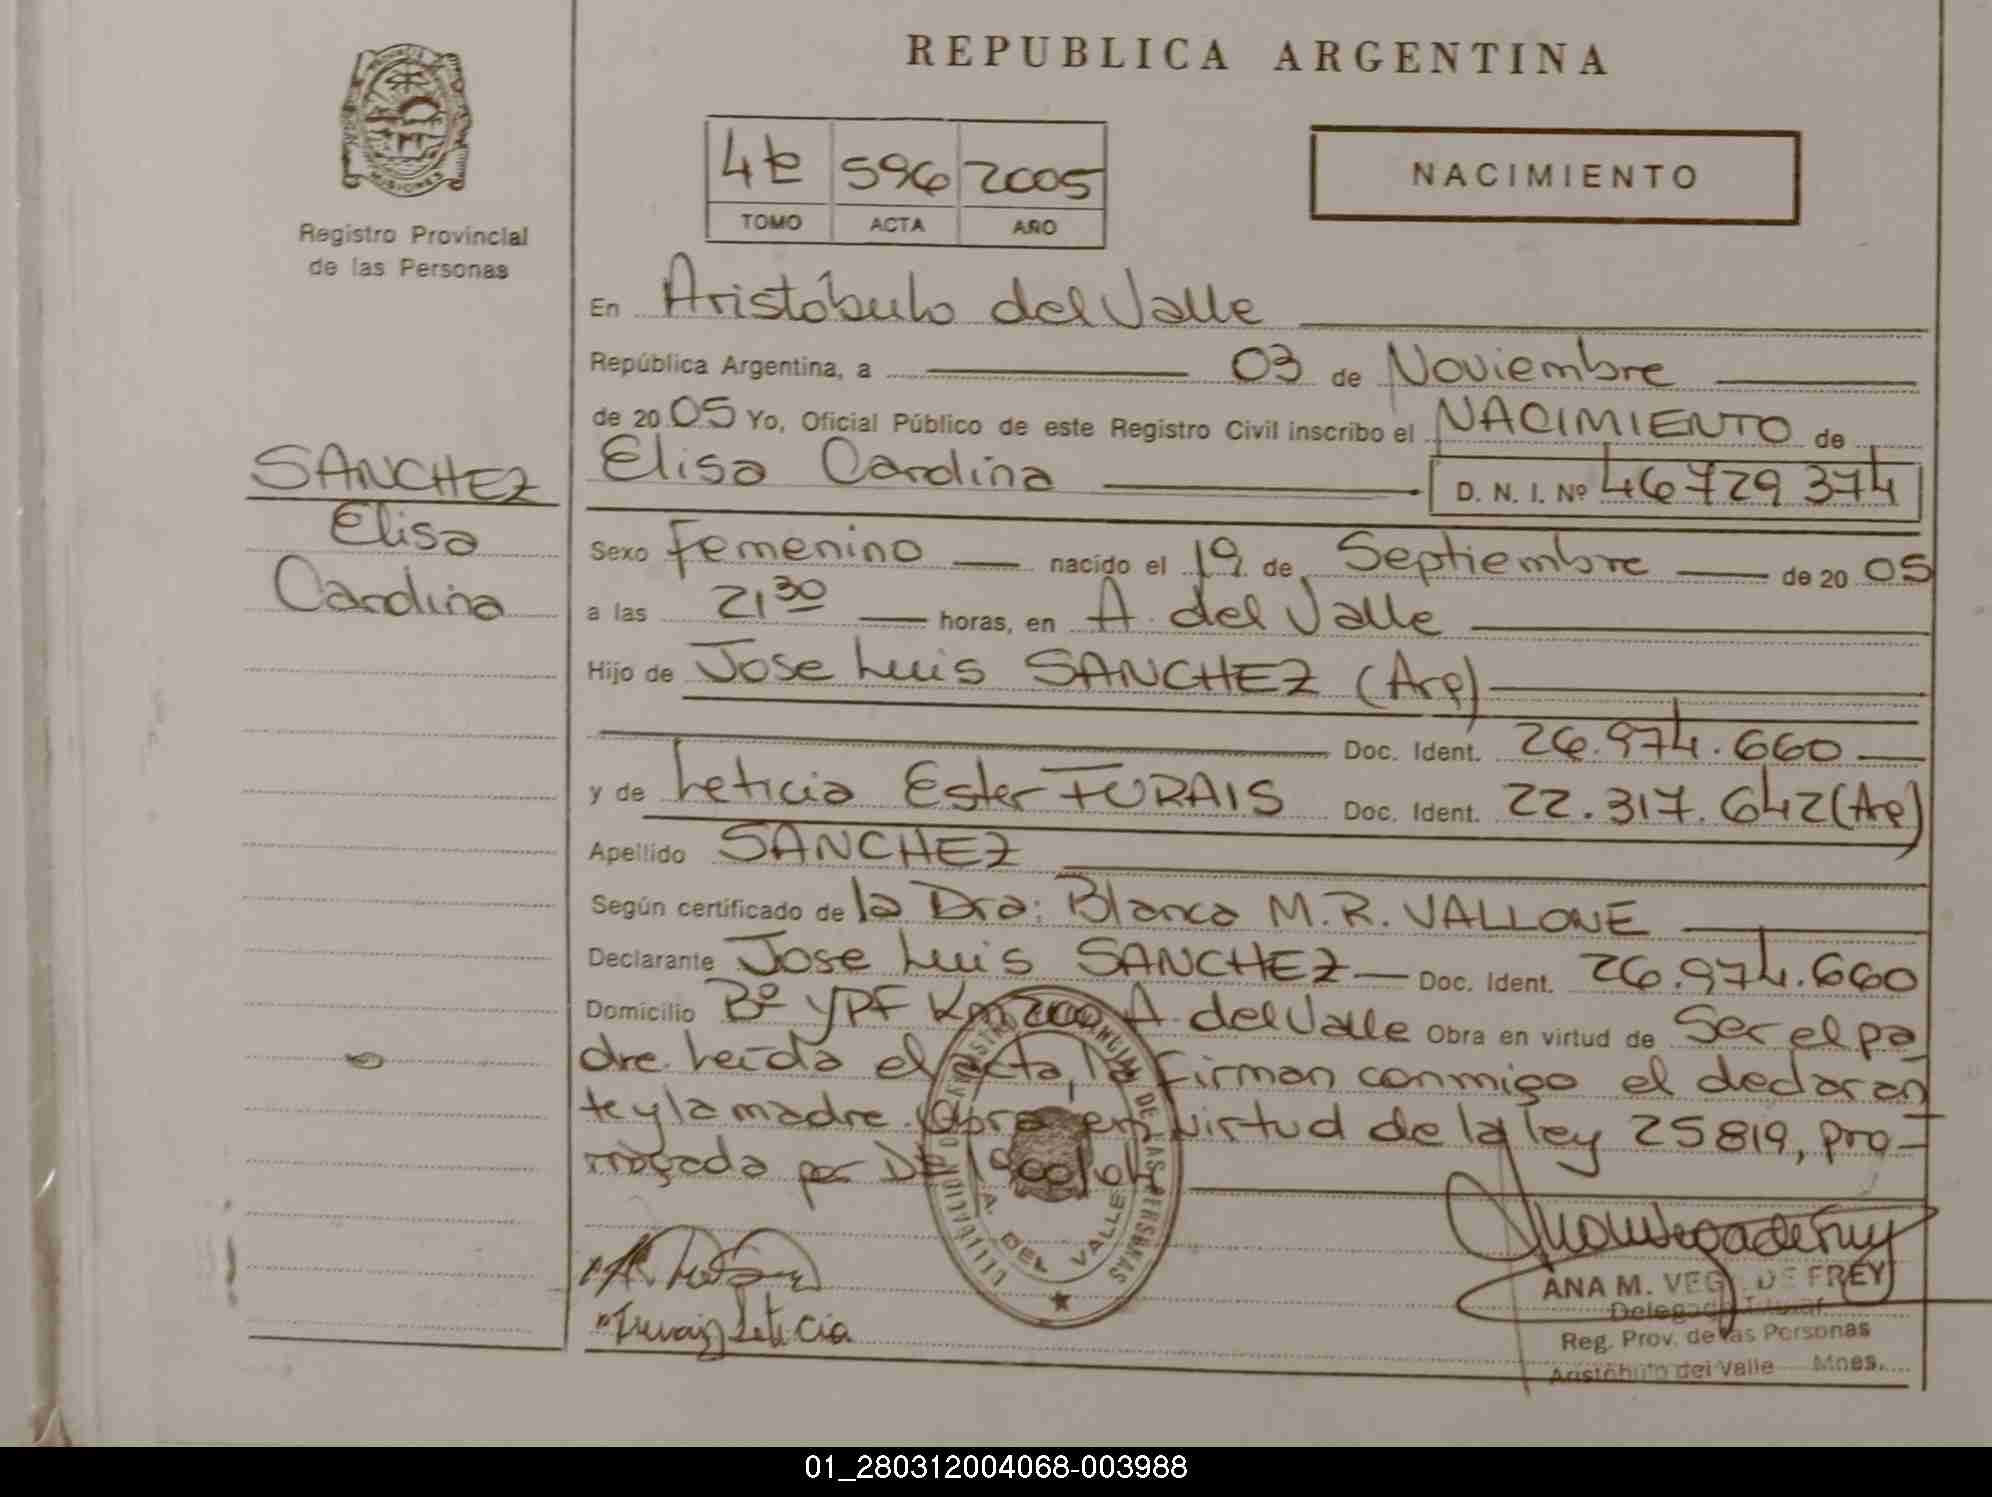 REPUBLICA ARGENTINA
PROVINCIA
MISIONES
Registro Provincial
de las Personas
4t 596 2005
TOMO ACTA AÑO
NACIMIENTO
SANCHEZ
Elisa
Carolina
En Aristóbulo del Valle
República Argentina, a 03 de Noviembre
de 2005 Yo, Oficial Público de este Registro Civil inscribo el NACIMIENTO de
Elisa Carolina D. N. I. Nº 46729374
Sexo Femenino nacido el 19 de Septiembre de 2005
a las 21,30 horas, en A. del Valle
Hijo de Jose Luis SANCHEZ (Arg)
Doc. Ident. 26.974.660
y de Leticia Ester Doc. Ident. 22.317.642 (Arg)
Apellido SANCHEZ
Según certificado de la Dra: Blanca M.R. VALLONE
Declarante Jose Luis SANCHEZ Doc. Ident. 26.974.660
Domicilio Bº YPF Km A. del Valle Obra en virtud de Ser el pa
dre. Leída el acta, la firman conmigo el declaran
te y la madre. Obra en virtud de la ley 25819, pro-
por
A. DEL VALLE
Leticia
ANA M. VEGA DE FREY
Delegada Titular
Reg. Prov. de las Personas
Aristóbulo del Valle Mnes.
01_280312004068-003988